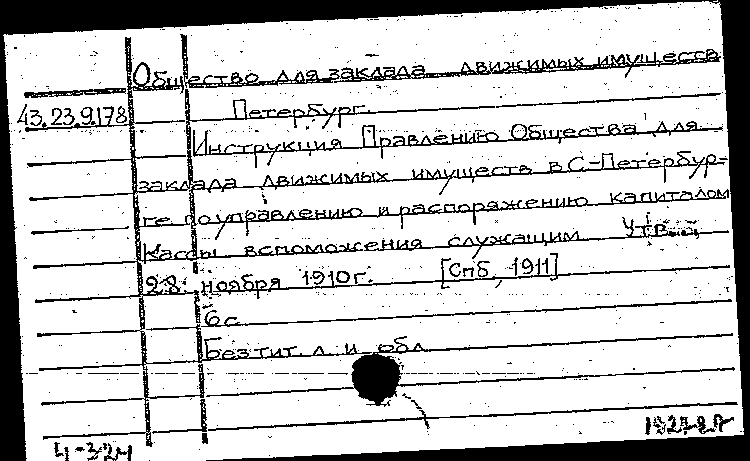 Общество для заклада движимых имуществ
43.23.9.178 Петербург.
Инструкция Правлению Общества для
заклада движимых имуществ в С.-Петербур-
ге по управлению и распоряжению капиталом
Кассы вспоможения служащим
28 ноября 1910 г. [Спб, 1911]
6 с.
Без тит. л. и обл